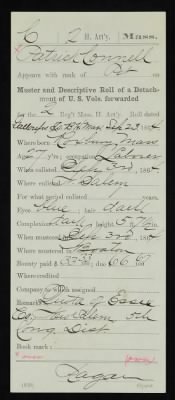 C 2 H. Art'y. Mass.
Patrick Connell
Appears with rank of Pvt
Muster and Descriptive Roll of a Detachment
ment of U. S. Vols. forwarded
for the 2 Reg't Mass. H. Art'y. Roll dated
Gallops Id B.H. Mass, Sep 23, 1864
Where born Roxbury Mass
Age 27 y'rs; occupation Laborer
When enlisted Sept 3rd, 1864
Where enlisted Salem
For what period enlisted years.
Eyes blue; hair dark
Complexion; height 5 ft. in.
When mustered in Sep 3rd, 1864
Where mustered in Boston
Bounty paid $ 33 33/100; due $ 66 67/100
Where credited
Company to which assigned
Remarks: Quota of Essex
Co. Salem 5th
Cong. Dist
Book mark:
Hagar